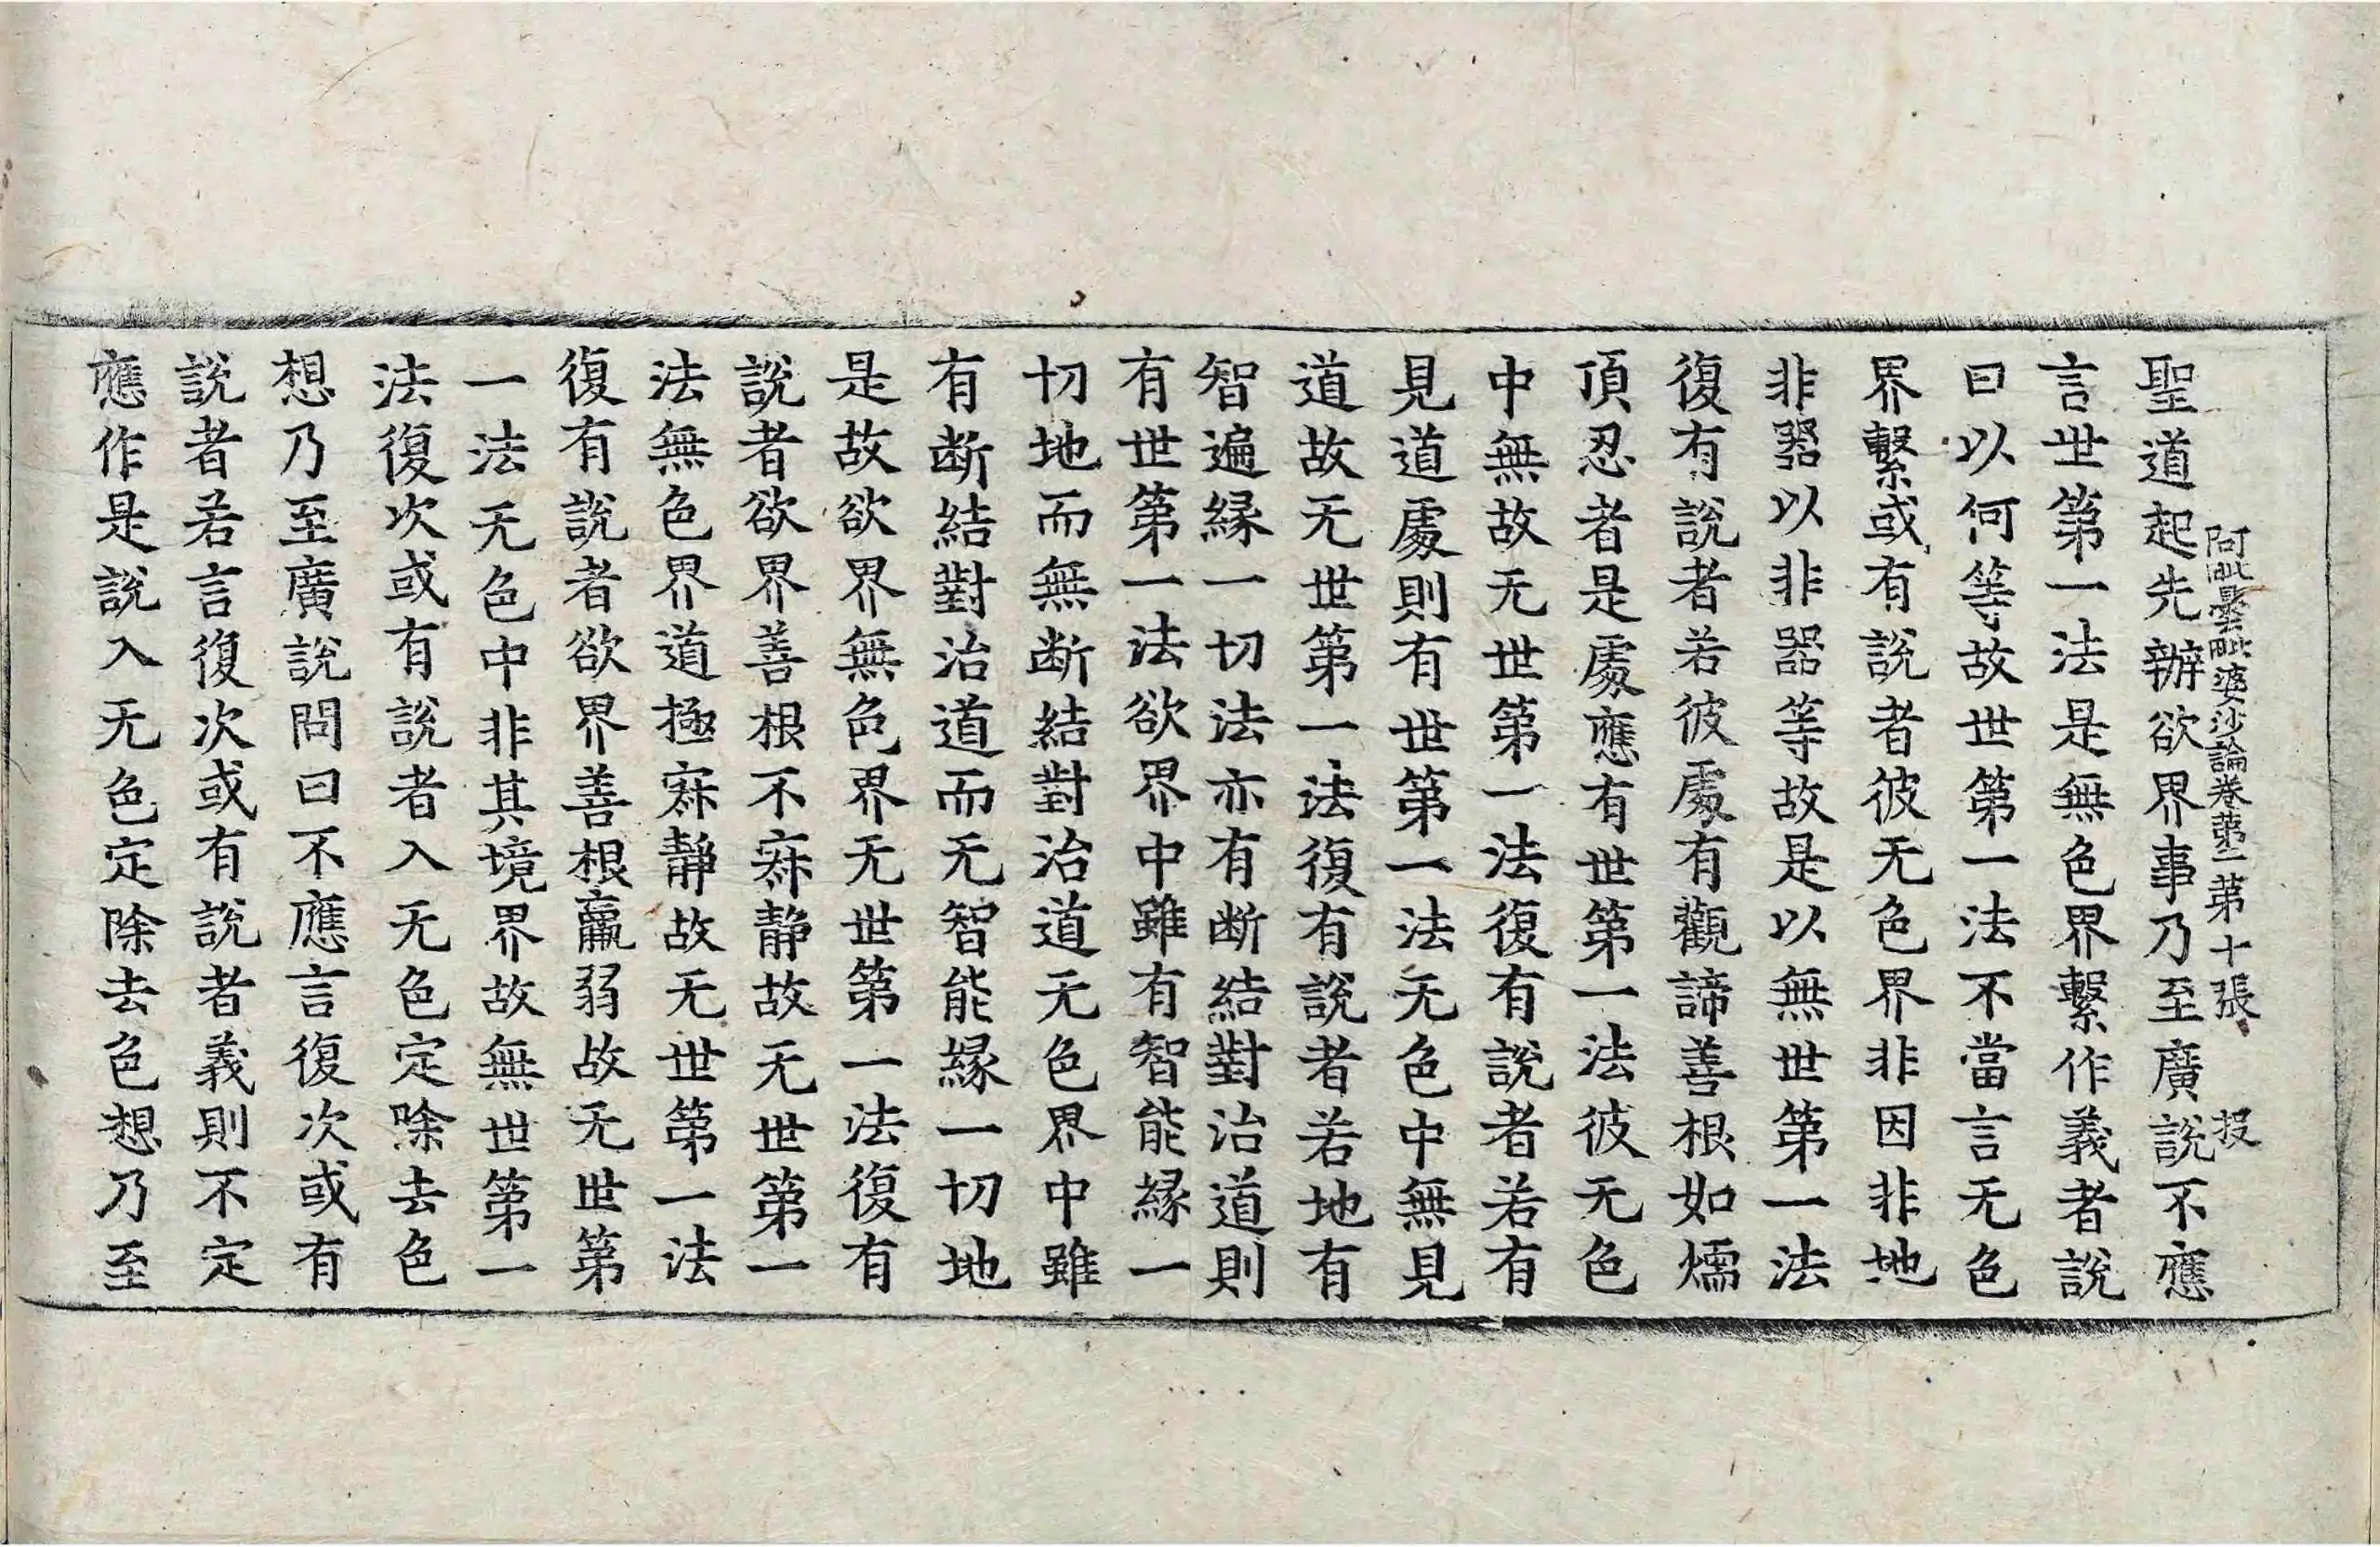 阿毗曇毗婆沙論卷第二 第十張 投
聖道起先辦欲界事乃至廣說不應
言世第一法是無色界繫作義者說
曰以何等故世第一法不當言无色
界繫或有說者彼无色界非因非地
非器以非非器等故是以無世第一法
復有說者若彼處有觀諦善根如燸
頂忍者是處應有世第一法彼无色
中無故无世第一法復有說者若有
見道處則有世第一法无色中無見
道故无世第一法復有說者若地有
智遍緣一切法亦有断結對治道則
有世第一法欲界中雖有智能緣一
切地而無断結對治道无色界中雖
有断結對治道而无智能緣一切地
是故欲界無色界无世第一法復有
說者欲界善根不寂靜故无世第一
法無色界道極寂靜故无世第一法
復有說者欲界善根羸弱故无世第
一法无色中非其境界故無世第一
法復次或有說者入无色定除去色
想乃至廣說問曰不應言復次或有
說者若言復次或有說者義則不定
應作是說入无色定除去色想乃至